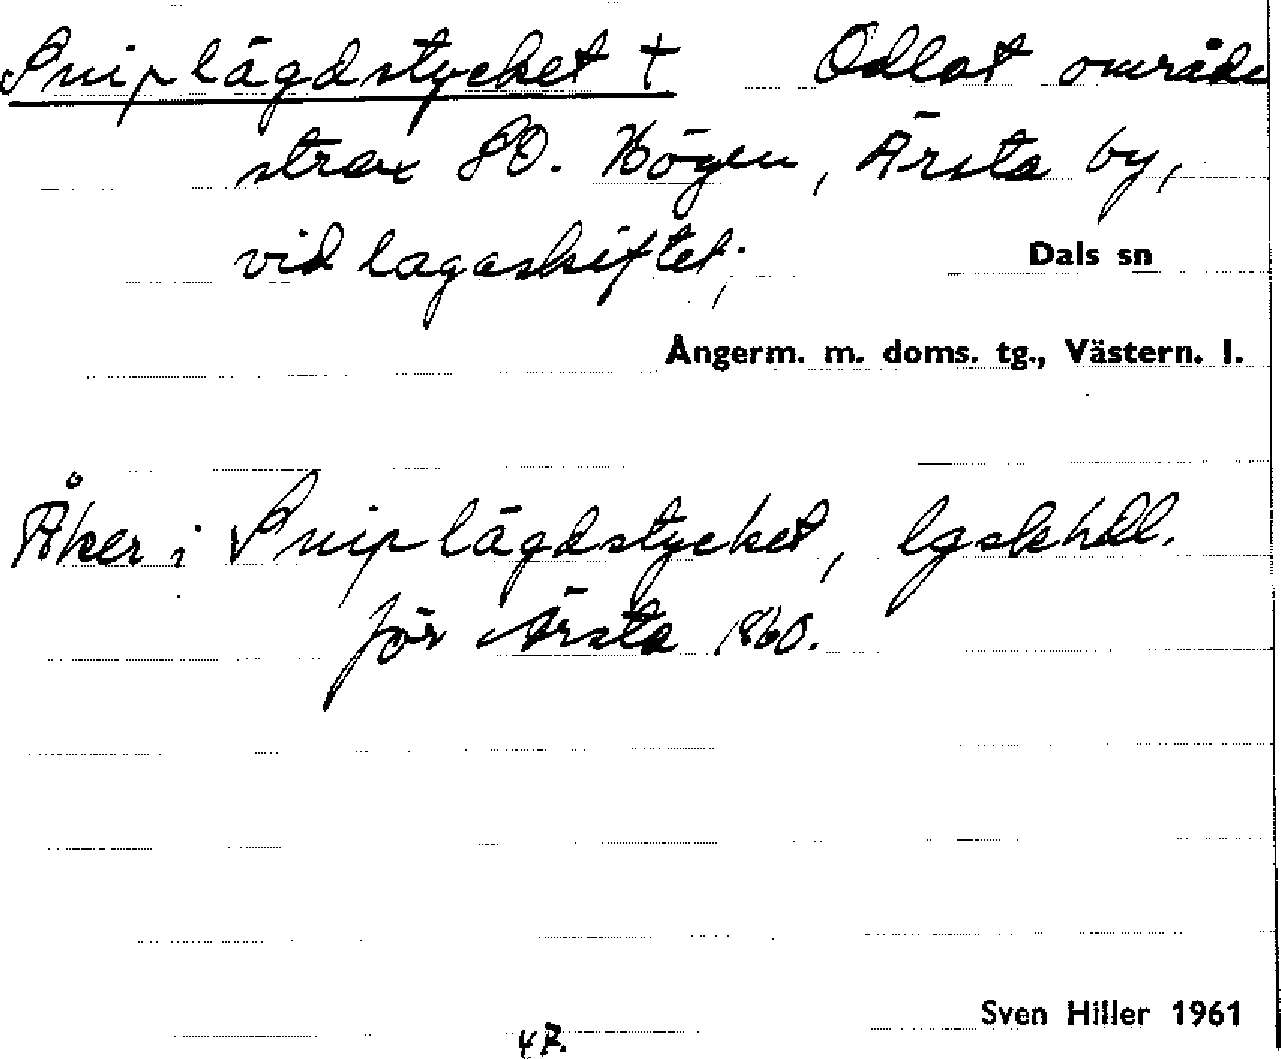 Sniplägdstycket † Odlat område
strax SO. Högen, Ärsta by,
vid lagaskiftet;
Dals sn
Ångerm. m. doms. tg., Västern. l.
Åker i Sniplägdstycket, lgskhdl.
för Ärsta 1860.
Sven Hiller 1961